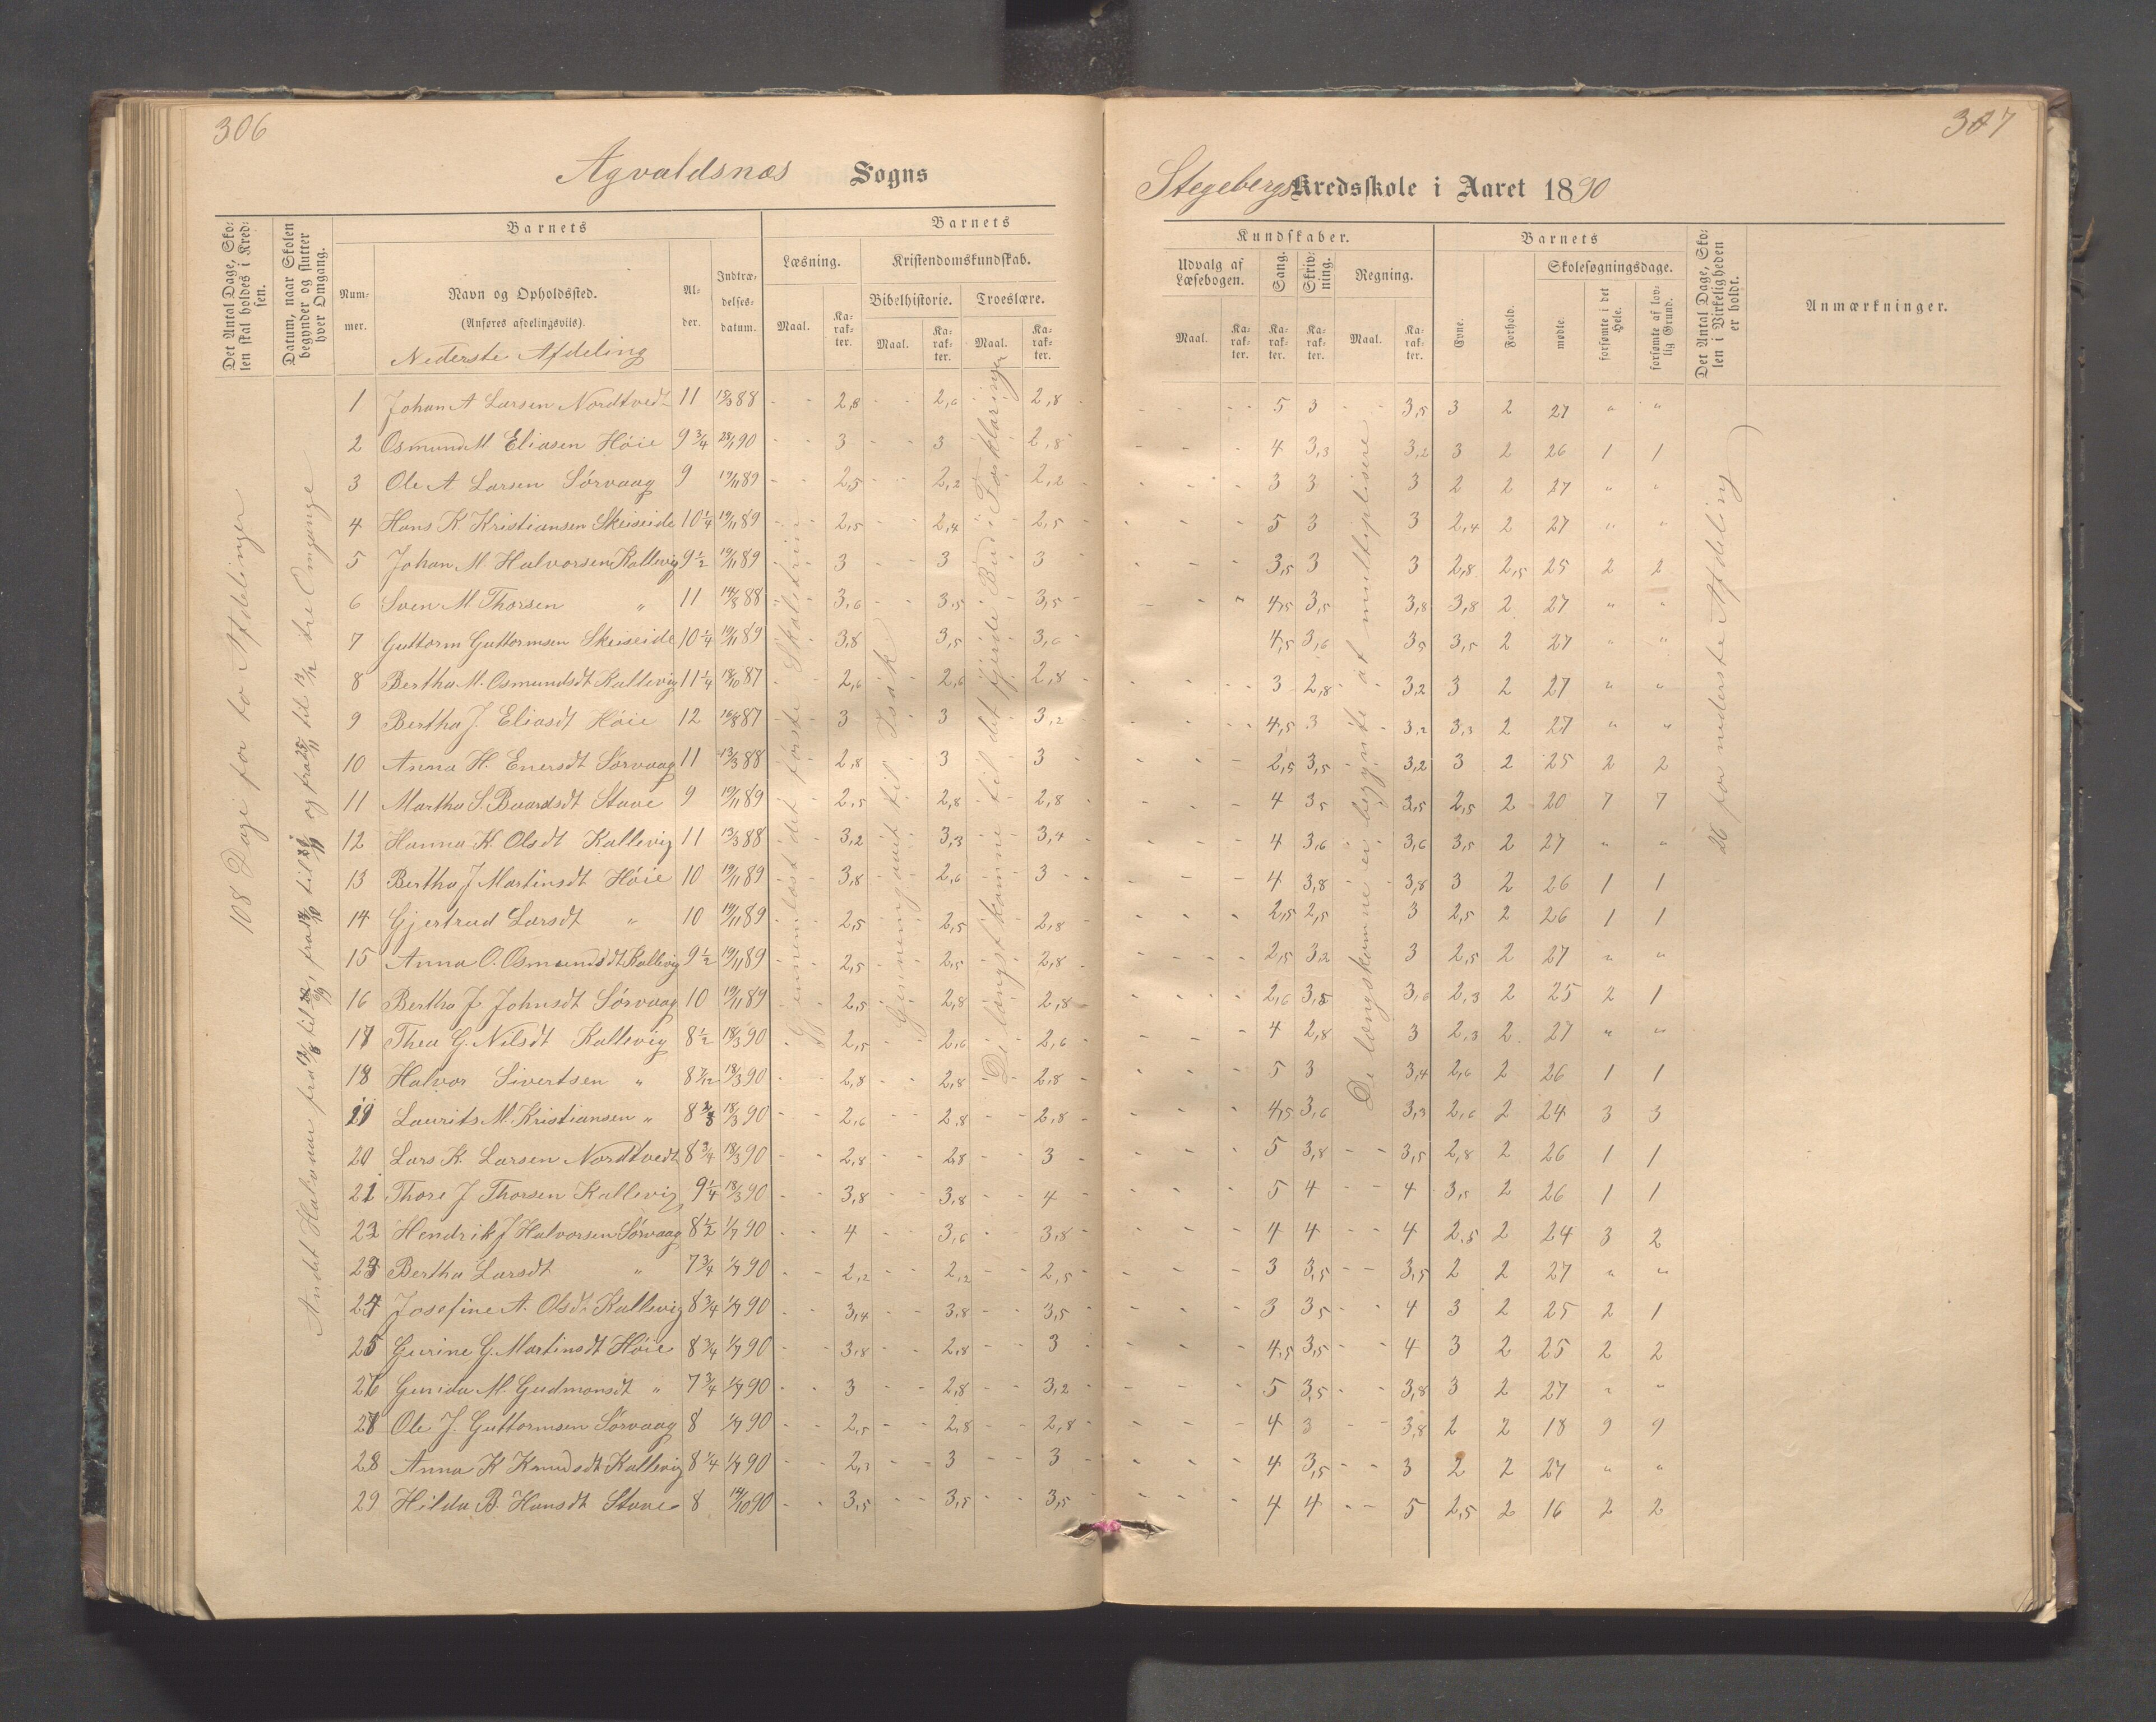 306
307
Agvaldsnæs Sogns
Stegebergs Kredsskole i Aaret 1890
Det Antal Dage, Skolen skal holdes i Kredsen.
Datum, naar Skolen begynder og slutter hver Omgang.
Barnets
Nummer.
Navn og Opholdssted.
(Anføres afdelingsviis).
Nederste Afdeling
Alder.
Indtrædelsesdatum.
Barnets
Læsning.
Maal.
Karakter.
Kristendomskundskab.
Bibelhistorie.
Maal.
Karakter.
Troeslære.
Maal.
Karakter.
Kundskaber.
Udvalg af Læsebogen.
Maal.
Karakter.
Sang.
Karakter.
Skrivning.
Karakter.
Regning.
Maal.
Karakter.
Barnets
Evne.
Forhold.
Skolesøgningsdage.
mødte.
forsømte i det Hele.
forsømte af lovlig Grund.
Det Antal Dage, Skolen i Virkeligheden er holdt.
Anmærkninger.
108 Dage for to Afdelinger
Andet Halvaar
tre Omgange
Gjennemlæst det første Skoletrin
Gjennemgaaet til Isak
De længst komne til det fjerde Bud i Forklaringen
De længstkomne er begyndt at multiplisere
26 for nederste Afdeling
1 Johan A Larsen Nordtvedt 11 13/3 88 2,8 2,6 2,8 5 3 3,5 3 2 27 " "
2 Osmund M Eliasen Høie 9 3/4 90 3 3 2,8 4 3,3 3,2 3 2 26 1 1
3 Ole A Larsen Sørvaag 9 19/11 89 2,5 2,2 2,2 3 3 3 2 2 27 " "
4 Hans K. Kristiansen Skeiseide 10 1/4 19/11 89 2,5 2,4 2,5 5 3 3 2,4 2 27 " "
5 Johan M. Halvorsen Kallevig 9 1/2 19/11 89 3 3 3 3,5 3 3 2,8 2,5 25 2 2
6 Sven M Thorsen " 11 88 3,6 3,5 3,5 4,5 3,5 3,8 3,8 2 27 " "
7 Guttorm Guttormsen Skeiseide 10 1/4 19/11 89 3,8 3,5 3,6 4,5 3,6 3,5 3,5 2 27 " "
8 Bertha M. Osmundsdt Kallevig 11 1/4 18/10 87 2,6 2,6 2,8 3 2,8 3,2 3 2 27 " "
9 Bertha J. Eliasdt Høie 12 87 3 3 3,2 4,5 3 3,2 3,3 2 27 " "
10 Anna H. Enersdt Sørvaag 11 13/3 88 2,8 3 3 2,5 3,5 3,2 3 2 25 2 2
11 Martha S. Baardsdt Stave 9 19/11 89 2,5 2,8 2,8 4 3,5 3,5 2,5 2 20 7 7
12 Hanna K. Olsdt Kallevig 11 13/3 88 3,2 3,3 3,4 4 3,6 3,6 3,5 2 27 " "
13 Bertha J Martinsdt Høie 10 19/11 89 3,8 2,6 3 4 3,8 3,8 3 2 26 1 1
14 Gjertrud Larsdt " 10 19/11 89 2,5 2,5 2,8 2,5 2,5 3 2,5 2 26 1 1
15 Anna O. Osmundsdt Kallevig 9 1/2 19/11 89 2,5 2,5 2,8 2,5 3,2 3 2,5 2 27 " "
16 Bertha J Johnsdt Sørvaag 10 19/11 89 2,5 2,8 2,8 2,6 3,5 3,6 2,3 2 25 2 1
17 Thea G. Nilsdt Kallevig 8 1/2 18/3 90 2,5 2,6 2,6 4 2,8 3 2,3 2 27 " "
18 Halvor Sivertsen " 8 7/12 18/3 90 2,8 2,8 2,8 5 3 3,4 2,6 2 26 1 1
19 Laurits M. Kristiansen " 8 2/3 18/3 90 2,6 2,8 2,8 4,5 3,6 3,3 2,6 2 24 3 3
20 Lars K. Larsen Nordtvedt 8 3/4 18/3 90 2,8 2,8 3 5 3,8 3,5 2,8 2 26 1 1
21 Thore J Thorsen Kallevig 9 1/4 18/3 90 3,8 3,8 4 5 4 4 3,5 2 26 1 1
22 Hendrik J Halvorsen Sørvaag 8 1/2 1/7 90 4 3,6 3,8 4 4 4 2,5 2 24 3 2
23 Bertha Larsdt " 7 3/4 1/7 90 2,2 2,2 2,5 3 3,5 3,5 2 2 27 " "
24 Josefine A. Olsdt Kallevig 8 3/4 1/7 90 3,4 3,8 3,5 3 3,5 4 3 2 25 2 1
25 Gurine G. Martinsdt Høie 8 3/4 1/7 90 3,8 2,8 3 4,5 3,5 4 3 2 25 2 2
26 Gurida M. Gudmonsdt " 7 3/4 1/7 90 3 2,8 3,2 5 3,5 3,8 3 2 27 " "
27 Ole J. Guttormsen Sørvaag 8 1/7 90 2,5 2,8 2,8 4 3 3,8 2 2 18 9 9
28 Anna K Knudsdt Kallevig 8 1/4 1/7 90 2,3 3 3 4 3,5 3 2 2 27 " "
29 Hilda B. Hansdt Stave 8 14/10 90 3,5 3,5 3,5 4 4 5 2,5 2 16 2 2